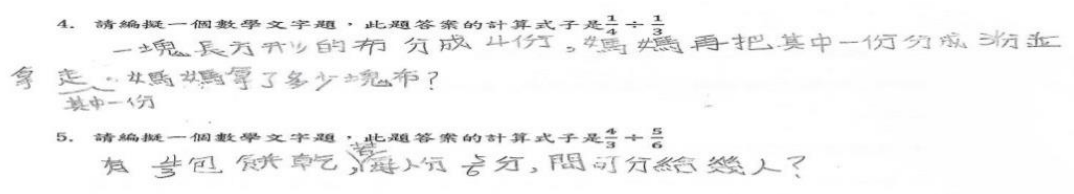 4. 請編擬一個數學文字題,此題答案的計算式子是1/4÷1/3
一塊長方形的布分成4份,媽媽再把其中一份分成3份並
拿走其中一份。媽媽拿了多少塊布?
5. 請編擬一個數學文字題,此題答案的計算式子是4/3÷5/6
有4/3包餅乾,若每人分5/6分,問可分給幾人?